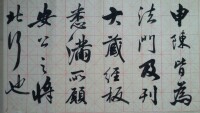 申陳皆為
法門及刊
大藏經板
悉滿所願
安公之將
北行也